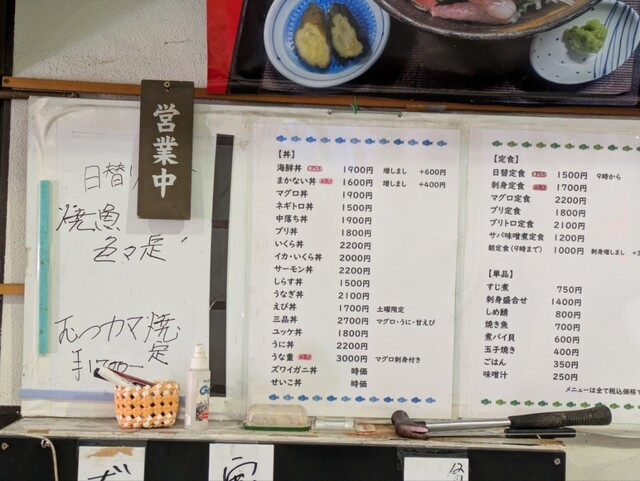 営業中
日替り
焼魚
色々定
むつカマ焼
定
【丼】
海鮮丼 1900円 増しまし +600円
まかない丼 1600円 増しまし +400円
マグロ丼 1900円
ネギトロ丼 1500円
中落ち丼 1900円
ブリ丼 1800円
いくら丼 2200円
イカ・いくら丼 2000円
サーモン丼 2200円
しらす丼 1500円
うなぎ丼 2100円
えび丼 1700円 土曜限定
三品丼 2700円 マグロ・うに・甘えび
ユッケ丼 1800円
うに丼 2200円
うな重 3000円 マグロ刺身付き
ズワイガニ丼 時価
せいこ丼 時価
【定食】
日替定食 1500円 9時から
刺身定食 1700円
マグロ定食 2200円
ブリ定食 1800円
ブリトロ定食 2100円
サバ味噌煮定食 1200円
朝定食(9時まで) 1000円 刺身増しまし
【単品】
すじ煮 750円
刺身盛合せ 1400円
しめ鯖 800円
焼き魚 700円
煮バイ貝 600円
玉子焼き 400円
ごはん 350円
味噌汁 250円
メニューは全て税込価格で